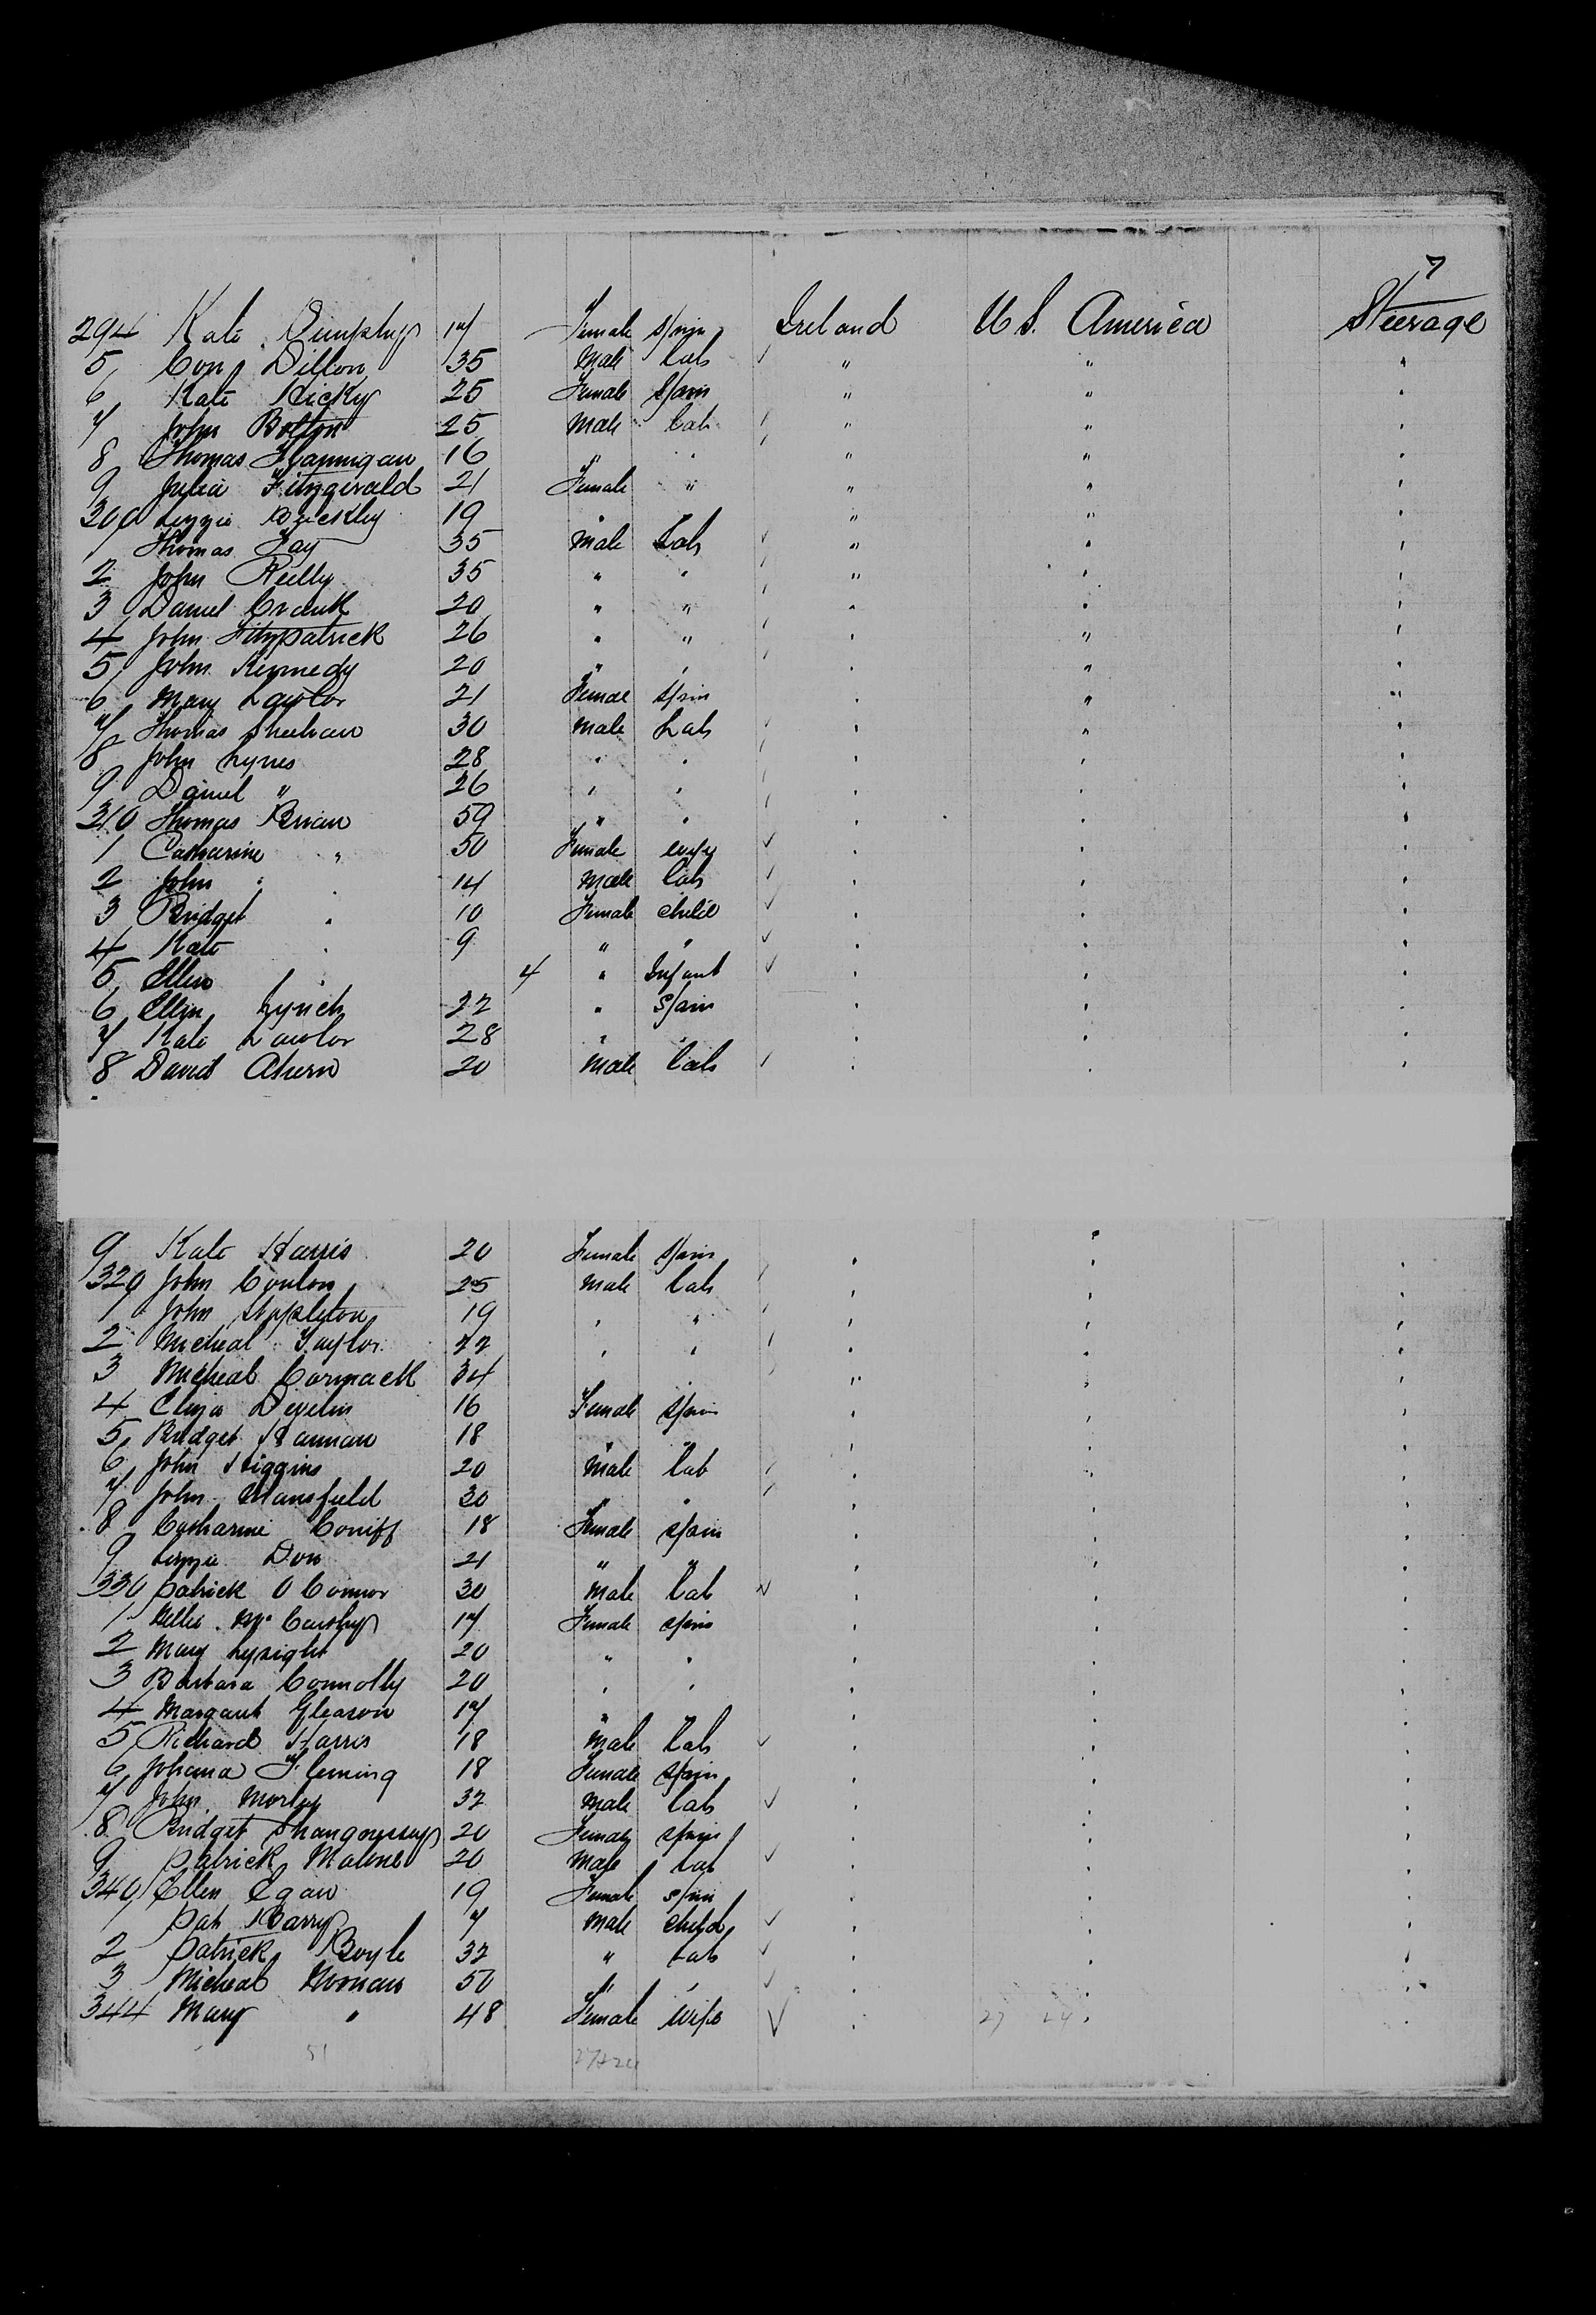 7
294 Kate Dunphy 17 Female Spin Ireland U S. America Steerage
5 Con Dillon 35 Male Lab ✓ " " "
6 Kate Hicky 25 Female Spin " " "
7 John Bolton 25 Male Lab ✓ " " "
8 Thomas Flannigan 16 " " ✓ " " "
9 Julia Fitzgerald 21 Female " " " "
300 Lizzie Buckley 19 " " " "
1 Thomas Fay 35 Male Lab ✓ " " "
2 John Reilly 35 " " ✓ " " "
3 Daniel 20 " " ✓ " " "
4 John Fitzpatrick 26 " " ✓ " " "
5 John Kennedy 20 " " ✓ " " "
6 Mary Lawlor 21 Female Spin " " "
7 Thomas Sheehan 30 Male Lab ✓ " " "
8 John Lynes 28 " " ✓ " " "
9 Daniel " 26 " " ✓ " " "
310 Thomas Brian 59 " " ✓ " " "
1 Catharine " 50 Female wife ✓ " " "
2 John " 14 Male Lab ✓ " " "
3 Bridget " 10 Female child ✓ " " "
4 Kate " 9 " " ✓ " " "
5 Ellen 4 " Infant ✓ " " "
6 Ellen Lynch 22 " Spin " " "
7 Kate Lawlor 28 " " " " "
8 David Ahern 20 Male Lab ✓ " " "
9 Kate Harris 20 Female Spin " " "
320 John Conlon 25 Male Lab ✓ " " "
1 John Stapleton 19 " " ✓ " " "
2 Micheal Taylor 22 " " ✓ " " "
3 Micheal Cormack 34 " " ✓ " " "
4 Eliza Develin 16 Female Spin " " "
5 Bridget Hannan 18 " " " " "
6 John Higgins 20 Male Lab ✓ " " "
7 John Mansfield 30 " " ✓ " " "
8 Catharine Coniff 18 Female Spin " " "
9 Lizzie Don 21 " " " " "
330 Patrick O Connor 30 Male Lab ✓ " " "
1 Nellie Mc Carthy 17 Female Spin " " "
2 Mary Lysight 20 " " " " "
3 Barbara Connolly 20 " " " " "
4 Margaret Gleason 17 " " " " "
5 Richard Harris 18 Male Lab ✓ " " "
6 Johana Fleming 18 Female Spin " " "
7 John Morley 32 Male Lab ✓ " " "
8 Bridget 20 Female Spin " " "
9 Patrick Malone 20 Male Lab ✓ " " "
340 Ellen Egan 19 Female Spin " " "
1 Pat Barry 7 Male child ✓ " " "
2 Patrick Boyle 32 " Lab ✓ " " "
3 Micheal 50 " " ✓ " " "
344 Mary " 48 Female Wife ✓ " 27 24 " "
51 27+24